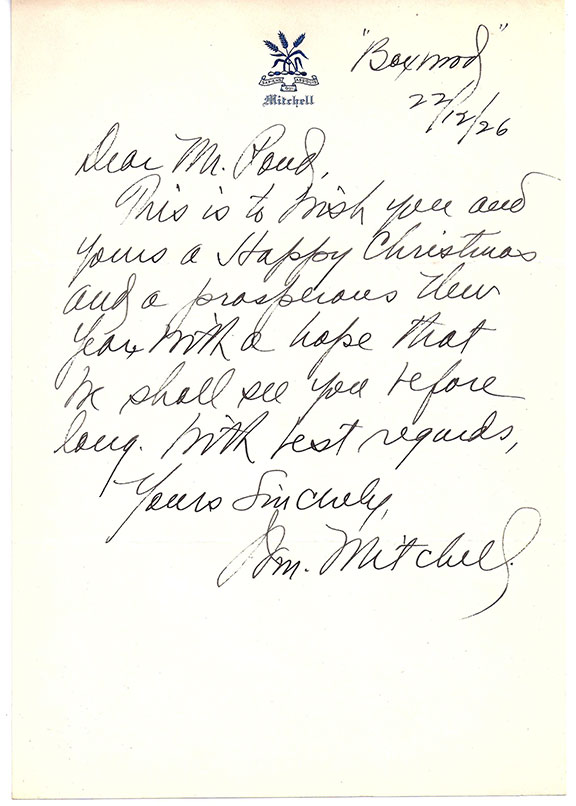 "Boxwood"
22/12/26
Mitchell
Dear Mr. Pond,
This is to wish you and
yours a Happy Christmas
and a prosperous New
Year with a hope that
we shall see you before
long. With best regards,
Yours Sincerely,
Wm. Mitchell.